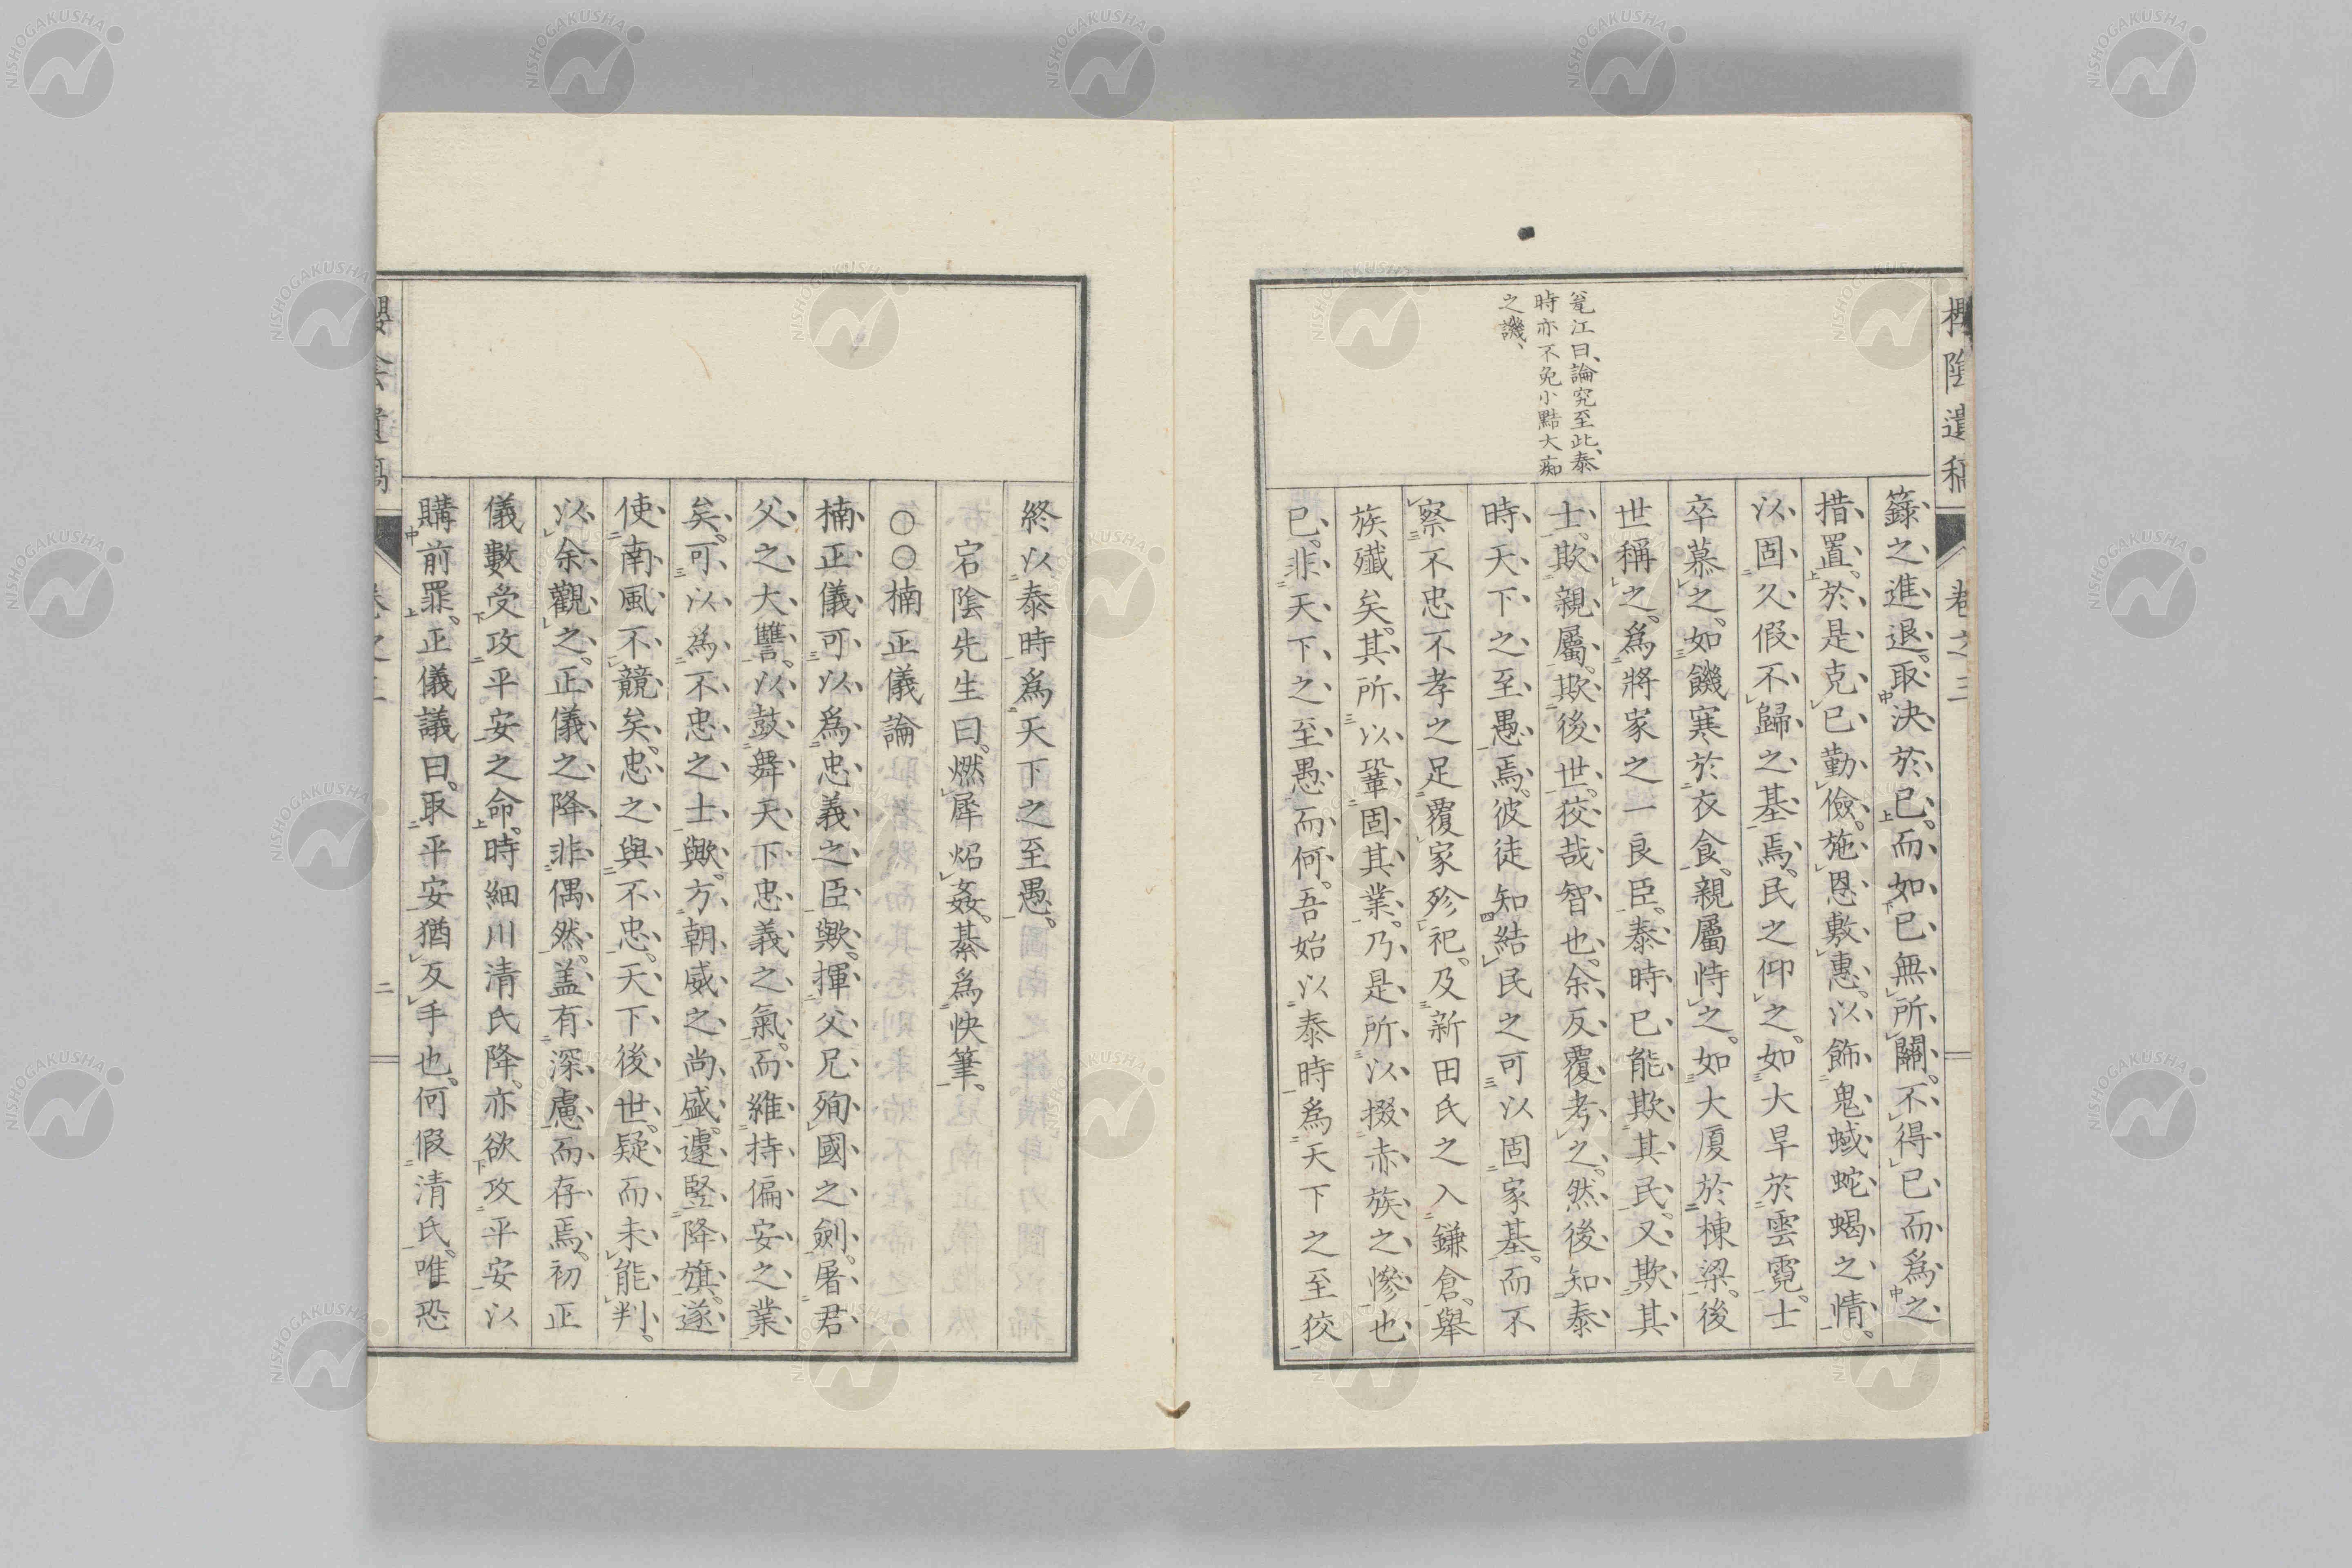 櫻陰遺稿
卷之三
籙之進退。取決於己。而如已無所關。不得已而爲之
措置。於是克已勤儉。施恩敷惠。以飾鬼蜮蛇蝎之情。
以固久假不歸之基焉。民之仰之。如大旱於雲霓。士
卒慕之。如饑寒於衣食。親屬恃之。如大厦於棟梁。後
世稱之。爲將家之一良臣。泰時已能欺其民。又欺其
士。欺親屬。欺後世。狡哉智也。余反覆考之。然後知泰
時天下之至愚焉。彼徒知結民之可以固家基。而不
察不忠不孝之足覆家殄祀。及新田氏之入鎌倉。舉
族殲矣。其所以鞏固其業。乃是所以掇赤族之慘也
已。非天下之至愚而何。吾始以泰時爲天下之至狡
篭江曰、論究至此、泰
時亦不免小黠大痴
之譏、
終以泰時爲天下之至愚。
宕陰先生曰。燃犀炤姦。綦爲快筆。
○○楠正儀論
楠正儀可以爲忠義之臣歟。揮父兄殉國之劍。屠君
父之大讐。以鼓舞天下忠義之氣。而維持偏安之業
矣。可以爲不忠之士歟。方朝威之尚盛。遽竪降旗。遂
使南風不競矣。忠之與不忠。天下後世。疑而未能判。
以余觀之。正儀之降非偶然。盖有深慮而存焉。初正
儀數受攻平安之命。時細川清氏降。亦欲攻平安以
購前罪。正儀議曰。取平安猶反手也。何假清氏。唯恐
二